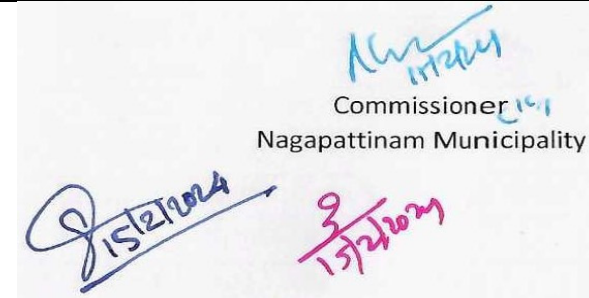 15/2/24
Commissioner
Nagapattinam Municipality
15/2/2024
15/2/2024